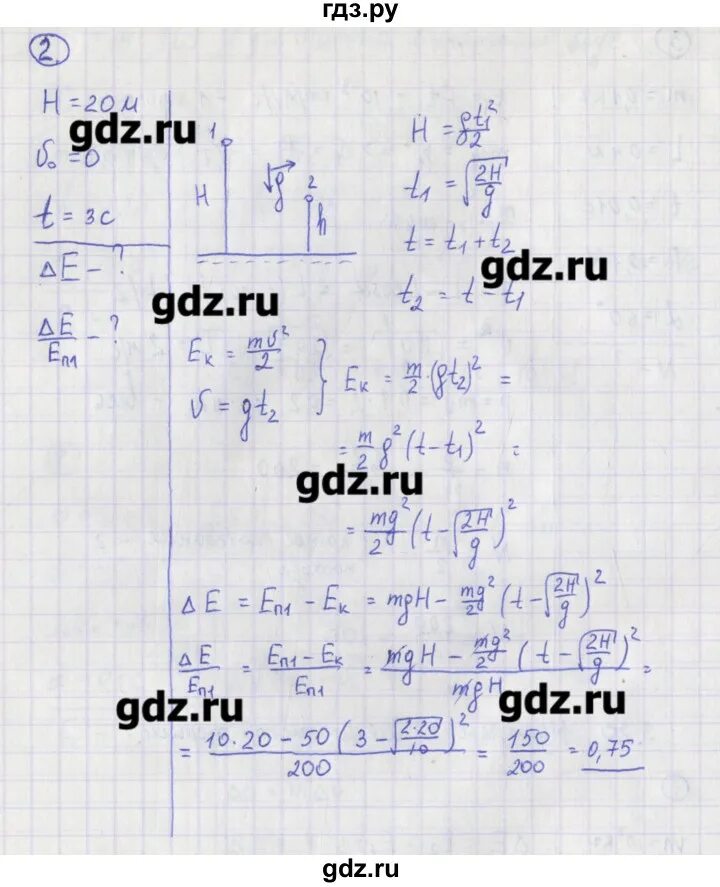 гдз.ру
2
H = 20 м
gdz.ru
υ₀ = 0
t = 3 с
ΔE - ?
ΔE/Eп1 - ?
1
H
g
2
h
H = gt₁²/2
t₁ = √(2H/g)
t = t₁ + t₂
gdz.ru
t₂ = t - t₁
gdz.ru
Eк = mυ²/2
υ = gt₂
} Eк = m/2 · (gt₂)² =
= m/2 g² (t - t₁)² =
gdz.ru
= mg²/2 (t - √(2H/g))²
ΔE = Eп1 - Eк = mgH - mg²/2 (t - √(2H/g))²
ΔE/Eп1 = (Eп1 - Eк)/Eп1 = (mgH - mg²/2 (t - √(2H/g))²)/mgH =
gdz.ru
gdz.ru
= (10·20 - 50 (3 - √(2·20/10))²)/200 = 150/200 = 0,75
gdz.ru